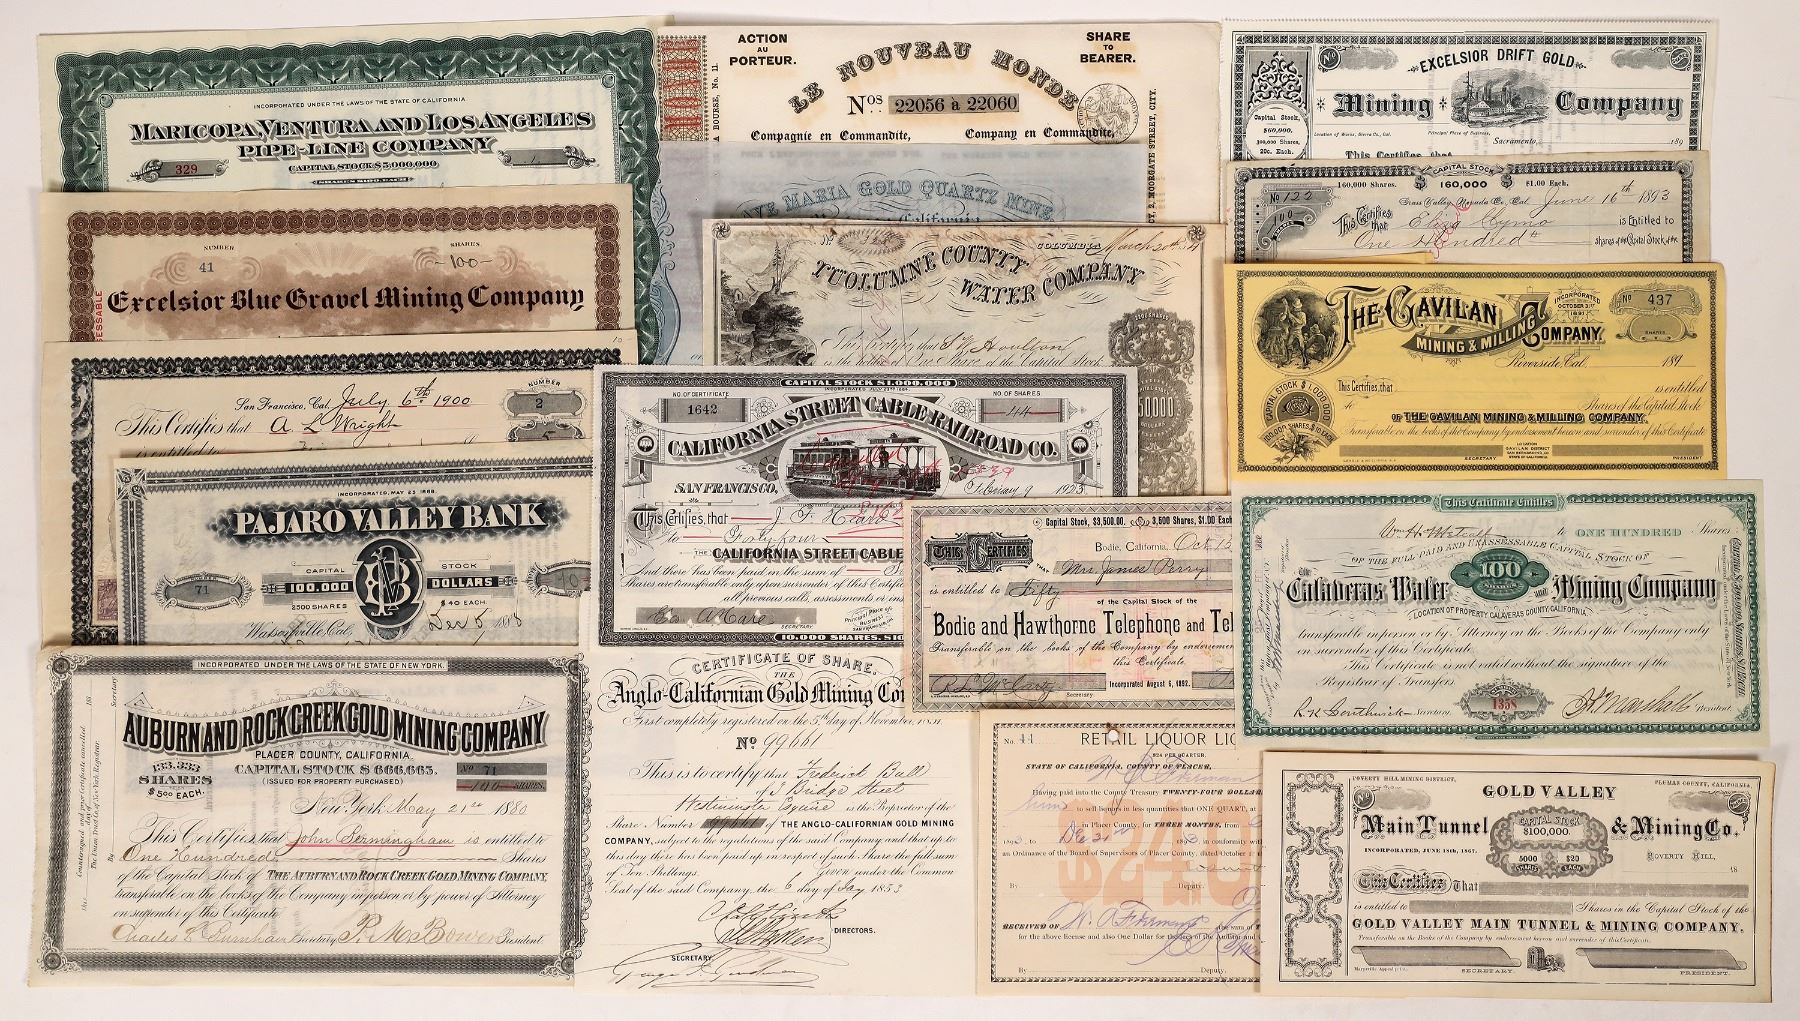 INCORPORATED UNDER THE LAWS OF THE STATE OF CALIFORNIA
MARICOPA, VENTURA AND LOS ANGELES
PIPE-LINE COMPANY
329
CAPITAL STOCK $5,000,000
SHARES $100 EACH
NUMBER
SHARES
41
-100-
Excelsior Blue Gravel Mining Company
San Francisco, Cal. July 6th 1900
NUMBER
2
This Certifies that A L Wright
is entitled to
5
INCORPORATED, MAY 23 1888
PAJARO VALLEY BANK
CAPITAL STOCK
71
100,000 DOLLARS
10
2500 SHARES
$40 EACH.
Watsonville, Cal.
Dec 5 1888
INCORPORATED UNDER THE LAWS OF THE STATE OF NEW YORK.
AUBURN AND ROCK CREEK GOLD MINING COMPANY
PLACER COUNTY, CALIFORNIA.
133,333
SHARES
$5.00 EACH.
CAPITAL STOCK $666,665.
(ISSUED FOR PROPERTY PURCHASED)
No 71
100 SHARES.
New York May 21st 1880
This Certifies that John Bermingham is entitled to
One Hundred Shares
of the Capital Stock of THE AUBURN AND ROCK CREEK GOLD MINING COMPANY,
transferable on the books of the Company in person or by power of Attorney
on surrender of this Certificate
Secretary
President
ACTION
AU
PORTEUR.
LE NOUVEAU MONDE
SHARE
TO
BEARER.
Nos 22056 à 22060
Compagnie en Commandite,
Company en Commandite,
2, MOORGATE STREET, CITY.
AVE MARIA GOLD QUARTZ MINE
California
No 325
COLUMBIA March 20th
TUOLUMNE COUNTY
WATER COMPANY
CAPITAL STOCK $1,000,000
NO. OF CERTIFICATE
1642
NO. OF SHARES
44
CALIFORNIA STREET CABLE RAILROAD CO.
Cancelled
SAN FRANCISCO,
February 9 1923
This Certifies, that J F Heard
to Forty four
THE CALIFORNIA STREET CABLE
And there has been paid up on the sum of
Shares are transferable only upon surrender of this Certific
all previous calls, assessments or ins
SECRETARY
10,000 SHARES, $10
CERTIFICATE OF SHARE.
THE
Anglo-Californian Gold Mining Co
First completely registered on the 3rd day of November, 1851.
No 99661
This is to certify that Frederick Ball
of 3 Bridge Street
Westminster Esquire is the Proprietor of the
Share Number 99661 of THE ANGLO-CALIFORNIAN GOLD MINING
COMPANY, subject to the regulations of the said Company and that up to
this day there has been paid up in respect of such Share the full sum
of Ten Shillings. Given under the Common
Seal of the said Company, the 6 day of May 1853
DIRECTORS.
SECRETARY
Capital Stock, $3,500.00.
3,500 Shares, $1.00 Each
THIS CERTIFIES
Bodie, California, Oct 13
THAT Mrs. James Perry
is entitled to Fifty
of the Capital Stock of the
Bodie and Hawthorne Telephone and Tel
Transferable on the books of the Company by endorsement
this Certificate.
Secretary
Incorporated August 6, 1892.
No. 11
RETAIL LIQUOR LIC
$24 PER QUARTER.
STATE OF CALIFORNIA, COUNTY OF PLACER,
Having paid into the County Treasury TWENTY-FOUR DOLLARS
to sell liquors in less quantities that ONE QUART, at
in Placer County, for THREE MONTHS, from
an Ordinance of the Board of Supervisors of Placer County, dated October
By
Deputy.
RECEIVED OF
for the above License and also One Dollar
By
Deputy.
EXCELSIOR DRIFT GOLD
Mining Company
Capital Stock,
$60,000.
300,000 Shares,
20c. Each.
Location of Works, Sierra Co., Cal.
Principal Place of Business,
Sacramento, 189
This Certifies that
CAPITAL STOCK
160,000 Shares. $ 160,000 $ $1.00 Each.
No 122
100
Grass Valley, Nevada Co., Cal. June 16th 1893
This Certifies
that
is Entitled to
One Hundred
Shares of the Capital Stock of the
THE GAVILAN
MINING & MILLING COMPANY.
INCORPORATED
OCTOBER 31ST
1891
No 437
SHARES
Riverside, Cal. 189
CAPITAL STOCK $1,000,000
100,000 SHARES, $10 EACH
This Certifies, that
is entitled
to
Shares of the Capital Stock
OF THE GAVILAN MINING & MILLING COMPANY.
Transferable on the books of the Company by endorsement hereon and surrender of this Certificate
LOCATION
GAVILAN DISTRICT
SAN BERNARDINO CO
STATE OF CALIFORNIA
SECRETARY
PRESIDENT
This Certificate Entitles
Wm H Metcalf to ONE HUNDRED Shares
OF THE FULL PAID AND UNASSESSABLE CAPITAL STOCK OF
Calaveras Water and Mining Company
100
SHARES
LOCATION OF PROPERTY, CALAVERAS COUNTY, CALIFORNIA.
transferable in person or by Attorney on the Books of the Company only
on surrender of this Certificate
This Certificate is not valid without the signature of the
Registrar of Transfers.
Secretary
1358
President
POVERTY HILL MINING DISTRICT,
PLUMAS COUNTY, CALIFORNIA
GOLD VALLEY
Main Tunnel & Mining Co.
CAPITAL STOCK
$100,000,
5000
SHARES
$20
EACH
INCORPORATED, JUNE 18th, 1867.
POVERTY HILL,
18
This Certifies That
is entitled to
Shares in the Capital Stock of the
GOLD VALLEY MAIN TUNNEL & MINING COMPANY.
Transferable on the Books of the Company by endorsement hereon and surrender of this Certificate.
Marysville Appeal print.
SECRETARY.
PRESIDENT.